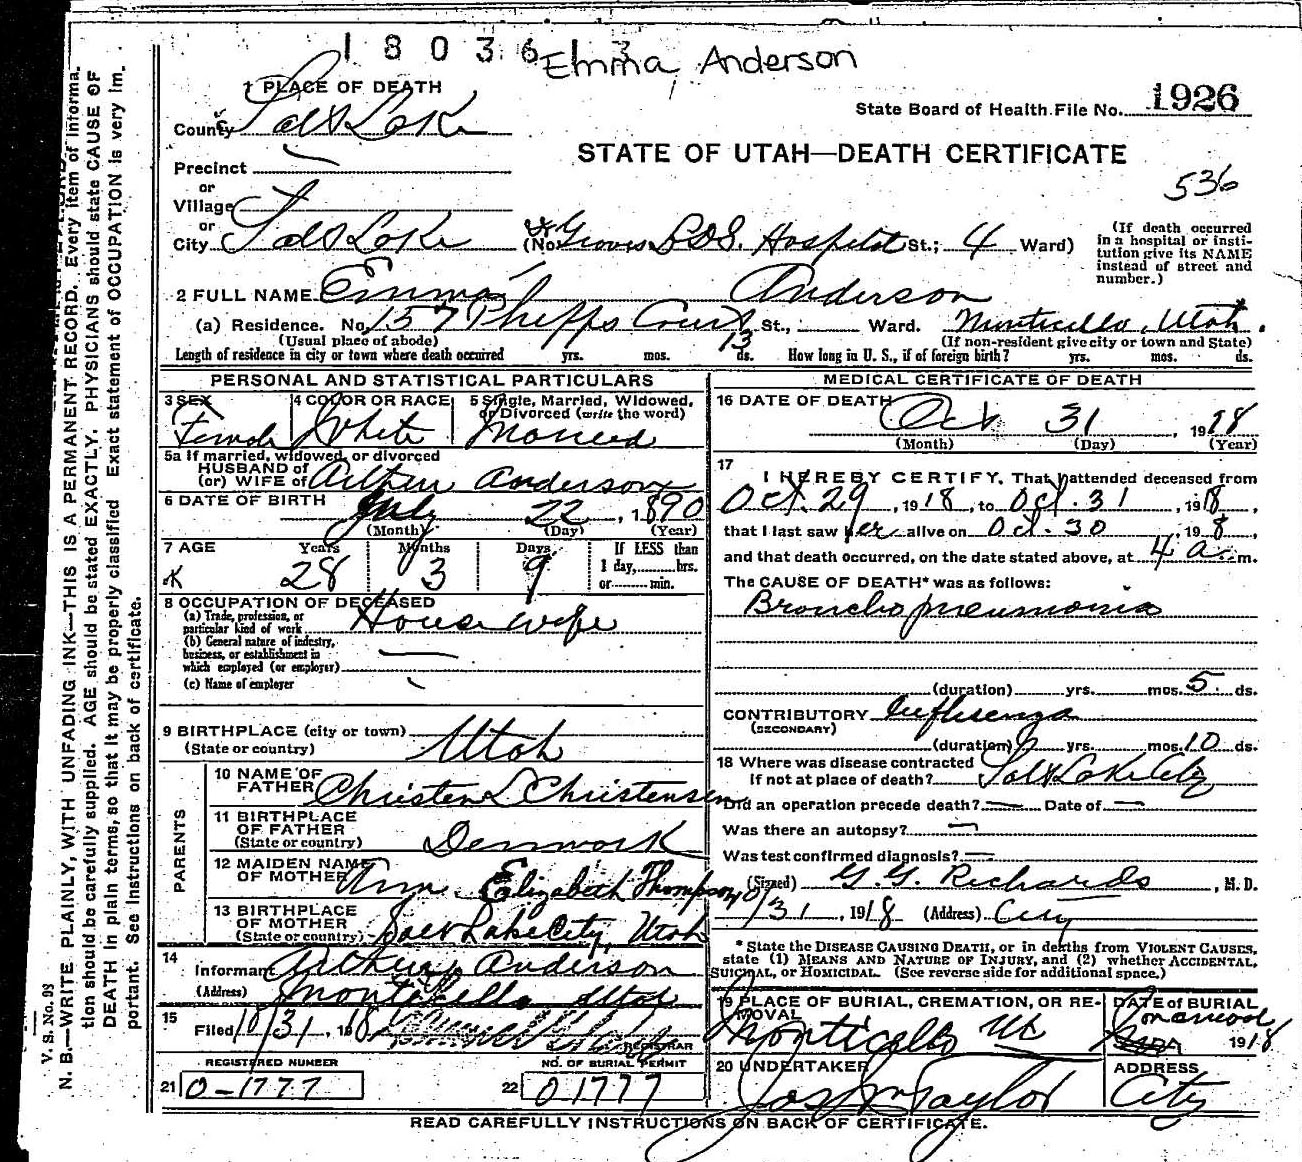 1 8 0 3 6 1 3
Emma Anderson
1 PLACE OF DEATH
County Salt Lake
State Board of Health File No. 1926
STATE OF UTAH—DEATH CERTIFICATE
536
Precinct
or
Village
or
City Salt Lake (No. Groves L D S. Hospital St.; 4 Ward)
(If death occurred in a hospital or institution give its NAME instead of street and number.)
2 FULL NAME Emma Anderson
(a) Residence. No. 157 Phipps Court St., Ward. Monticello, Utah.
(Usual place of abode) (If non-resident give city or town and State)
Length of residence in city or town where death occurred yrs. mos. 13 ds. How long in U. S., if of foreign birth? yrs. mos. ds.
PERSONAL AND STATISTICAL PARTICULARS
3 SEX 4 COLOR OR RACE 5 Single, Married, Widowed, or Divorced (write the word)
Female White Married
5a If married, widowed, or divorced
HUSBAND of
(or) WIFE of Arthur Anderson
6 DATE OF BIRTH July 22, 1890
(Month) (Day) (Year)
7 AGE Years Months Days If LESS than
28 3 9 1 day, hrs.
or min.
8 OCCUPATION OF DECEASED
(a) Trade, profession, or
particular kind of work House wife
(b) General nature of industry,
business, or establishment in
which employed (or employer)
(c) Name of employer
9 BIRTHPLACE (city or town)
(State or country) Utah
PARENTS
10 NAME OF
FATHER Christen L Christensen
11 BIRTHPLACE
OF FATHER
(State or country) Denmark
12 MAIDEN NAME
OF MOTHER Ann Elizabeth Thompson
13 BIRTHPLACE
OF MOTHER
(State or country) Salt Lake City, Utah
14
Informant Arthur Anderson
(Address) Monticello Utah
15
Filed 10/31, 1918
REGISTRAR
REGISTERED NUMBER NO. OF BURIAL PERMIT
21 0-1777 22 0 1777
MEDICAL CERTIFICATE OF DEATH
16 DATE OF DEATH
Oct 31, 1918
(Month) (Day) (Year)
17
I HEREBY CERTIFY, That I attended deceased from
Oct. 29, 1918, to Oct. 31, 1918,
that I last saw her alive on Oct. 30, 1918,
and that death occurred, on the date stated above, at 4 a. m.
The CAUSE OF DEATH* was as follows:
Bronchopneumonia
(duration) yrs. mos. 5 ds.
CONTRIBUTORY Influenza
(SECONDARY)
(duration) yrs. mos. 10 ds.
18 Where was disease contracted
If not at place of death? Salt Lake City
Did an operation precede death? Date of
Was there an autopsy?
Was test confirmed diagnosis?
(Signed) G. G. Richards, M. D.
10/31, 1918 (Address) City
* State the DISEASE CAUSING DEATH, or in deaths from VIOLENT CAUSES,
state (1) MEANS AND NATURE OF INJURY, and (2) whether ACCIDENTAL,
SUICIDAL, or HOMICIDAL. (See reverse side for additional space.)
19 PLACE OF BURIAL, CREMATION, OR REMOVAL DATE of BURIAL
Monticello Ut 1918
20 UNDERTAKER ADDRESS
Jos Wm Taylor City
READ CAREFULLY INSTRUCTIONS ON BACK OF CERTIFICATE.
V. S. No. 98
N. B.—WRITE PLAINLY, WITH UNFADING INK—THIS IS A PERMANENT RECORD. Every item of informa-
tion should be carefully supplied. AGE should be stated EXACTLY. PHYSICIANS should state CAUSE OF
DEATH in plain terms, so that it may be properly classified Exact statement of OCCUPATION is very im-
portant. See instructions on back of certificate.